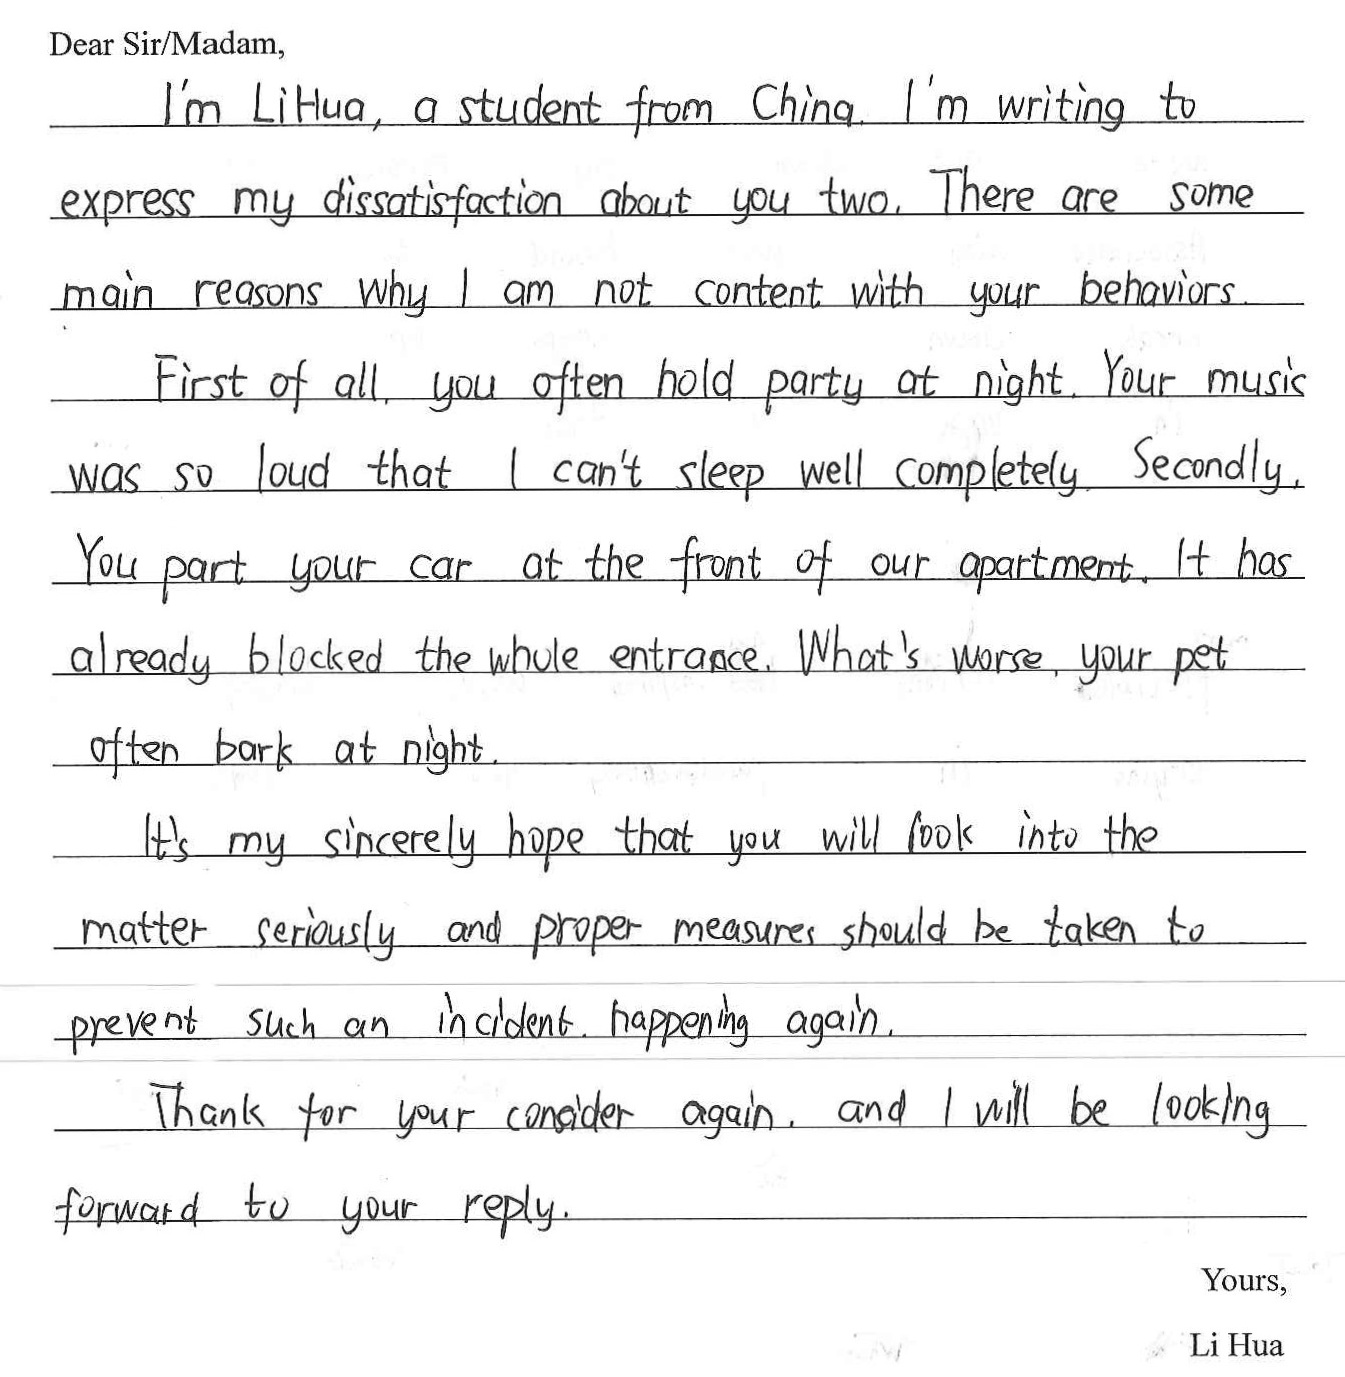 Dear Sir/Madam,
I'm LiHua, a student from China. I'm writing to
express my dissatisfaction about you two. There are some
main reasons why I am not content with your behaviors.
First of all, you often hold party at night. Your music
was so loud that I can't sleep well completely. Secondly,
You part your car at the front of our apartment. It has
already blocked the whole entrance. What's worse, your pet
often bark at night.
It's my sincerely hope that you will look into the
matter seriously and proper measures should be taken to
prevent such an incident. happening again.
Thank for your consider again, and I will be looking
forward to your reply.
Yours,
Li Hua